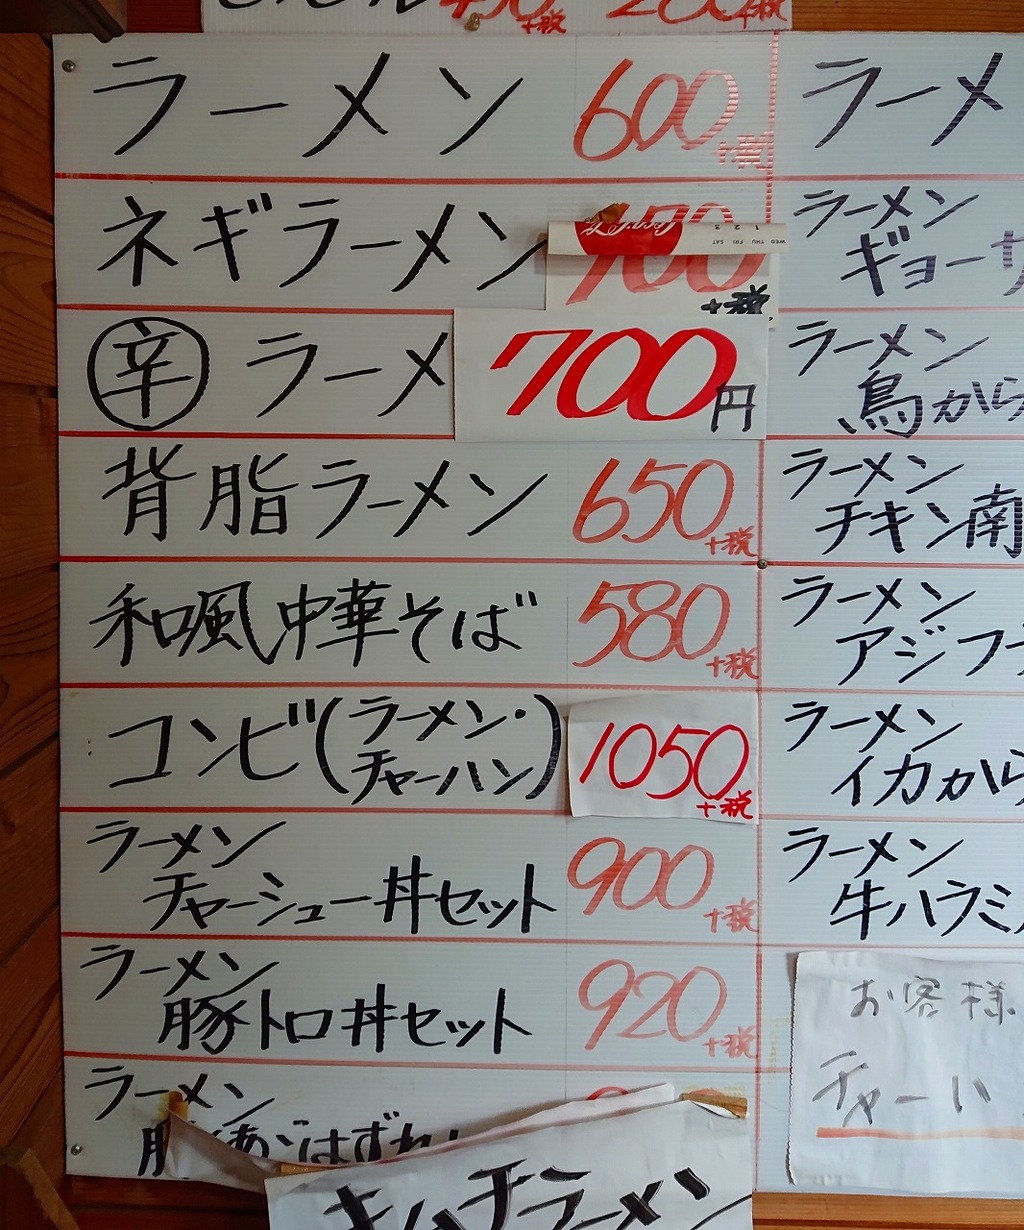 ラーメン 600 +税
ネギラーメン 700 +税
WED THU FRI SAT 1 2 3
辛 ラーメ 700円
背脂ラーメン 650 +税
和風中華そば 580 +税
コンビ(ラーメン・チャーハン) 1050 +税
ラーメン
チャーシュー丼セット 900 +税
ラーメン
豚トロ丼セット 920 +税
ラーメン
キムチラーメン
ラーメ
ラーメン
ギョーザ
ラーメン
鳥から
ラーメン
チキン南
ラーメン
アジフラ
ラーメン
イカから
ラーメン
牛ハラミ
お客様
チャーハ